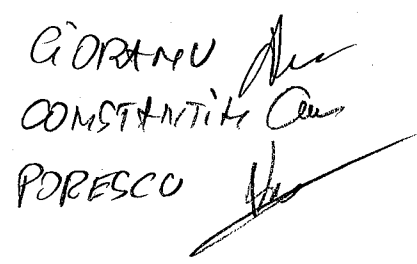 CIORANU
CONSTANTIN
PORESCU